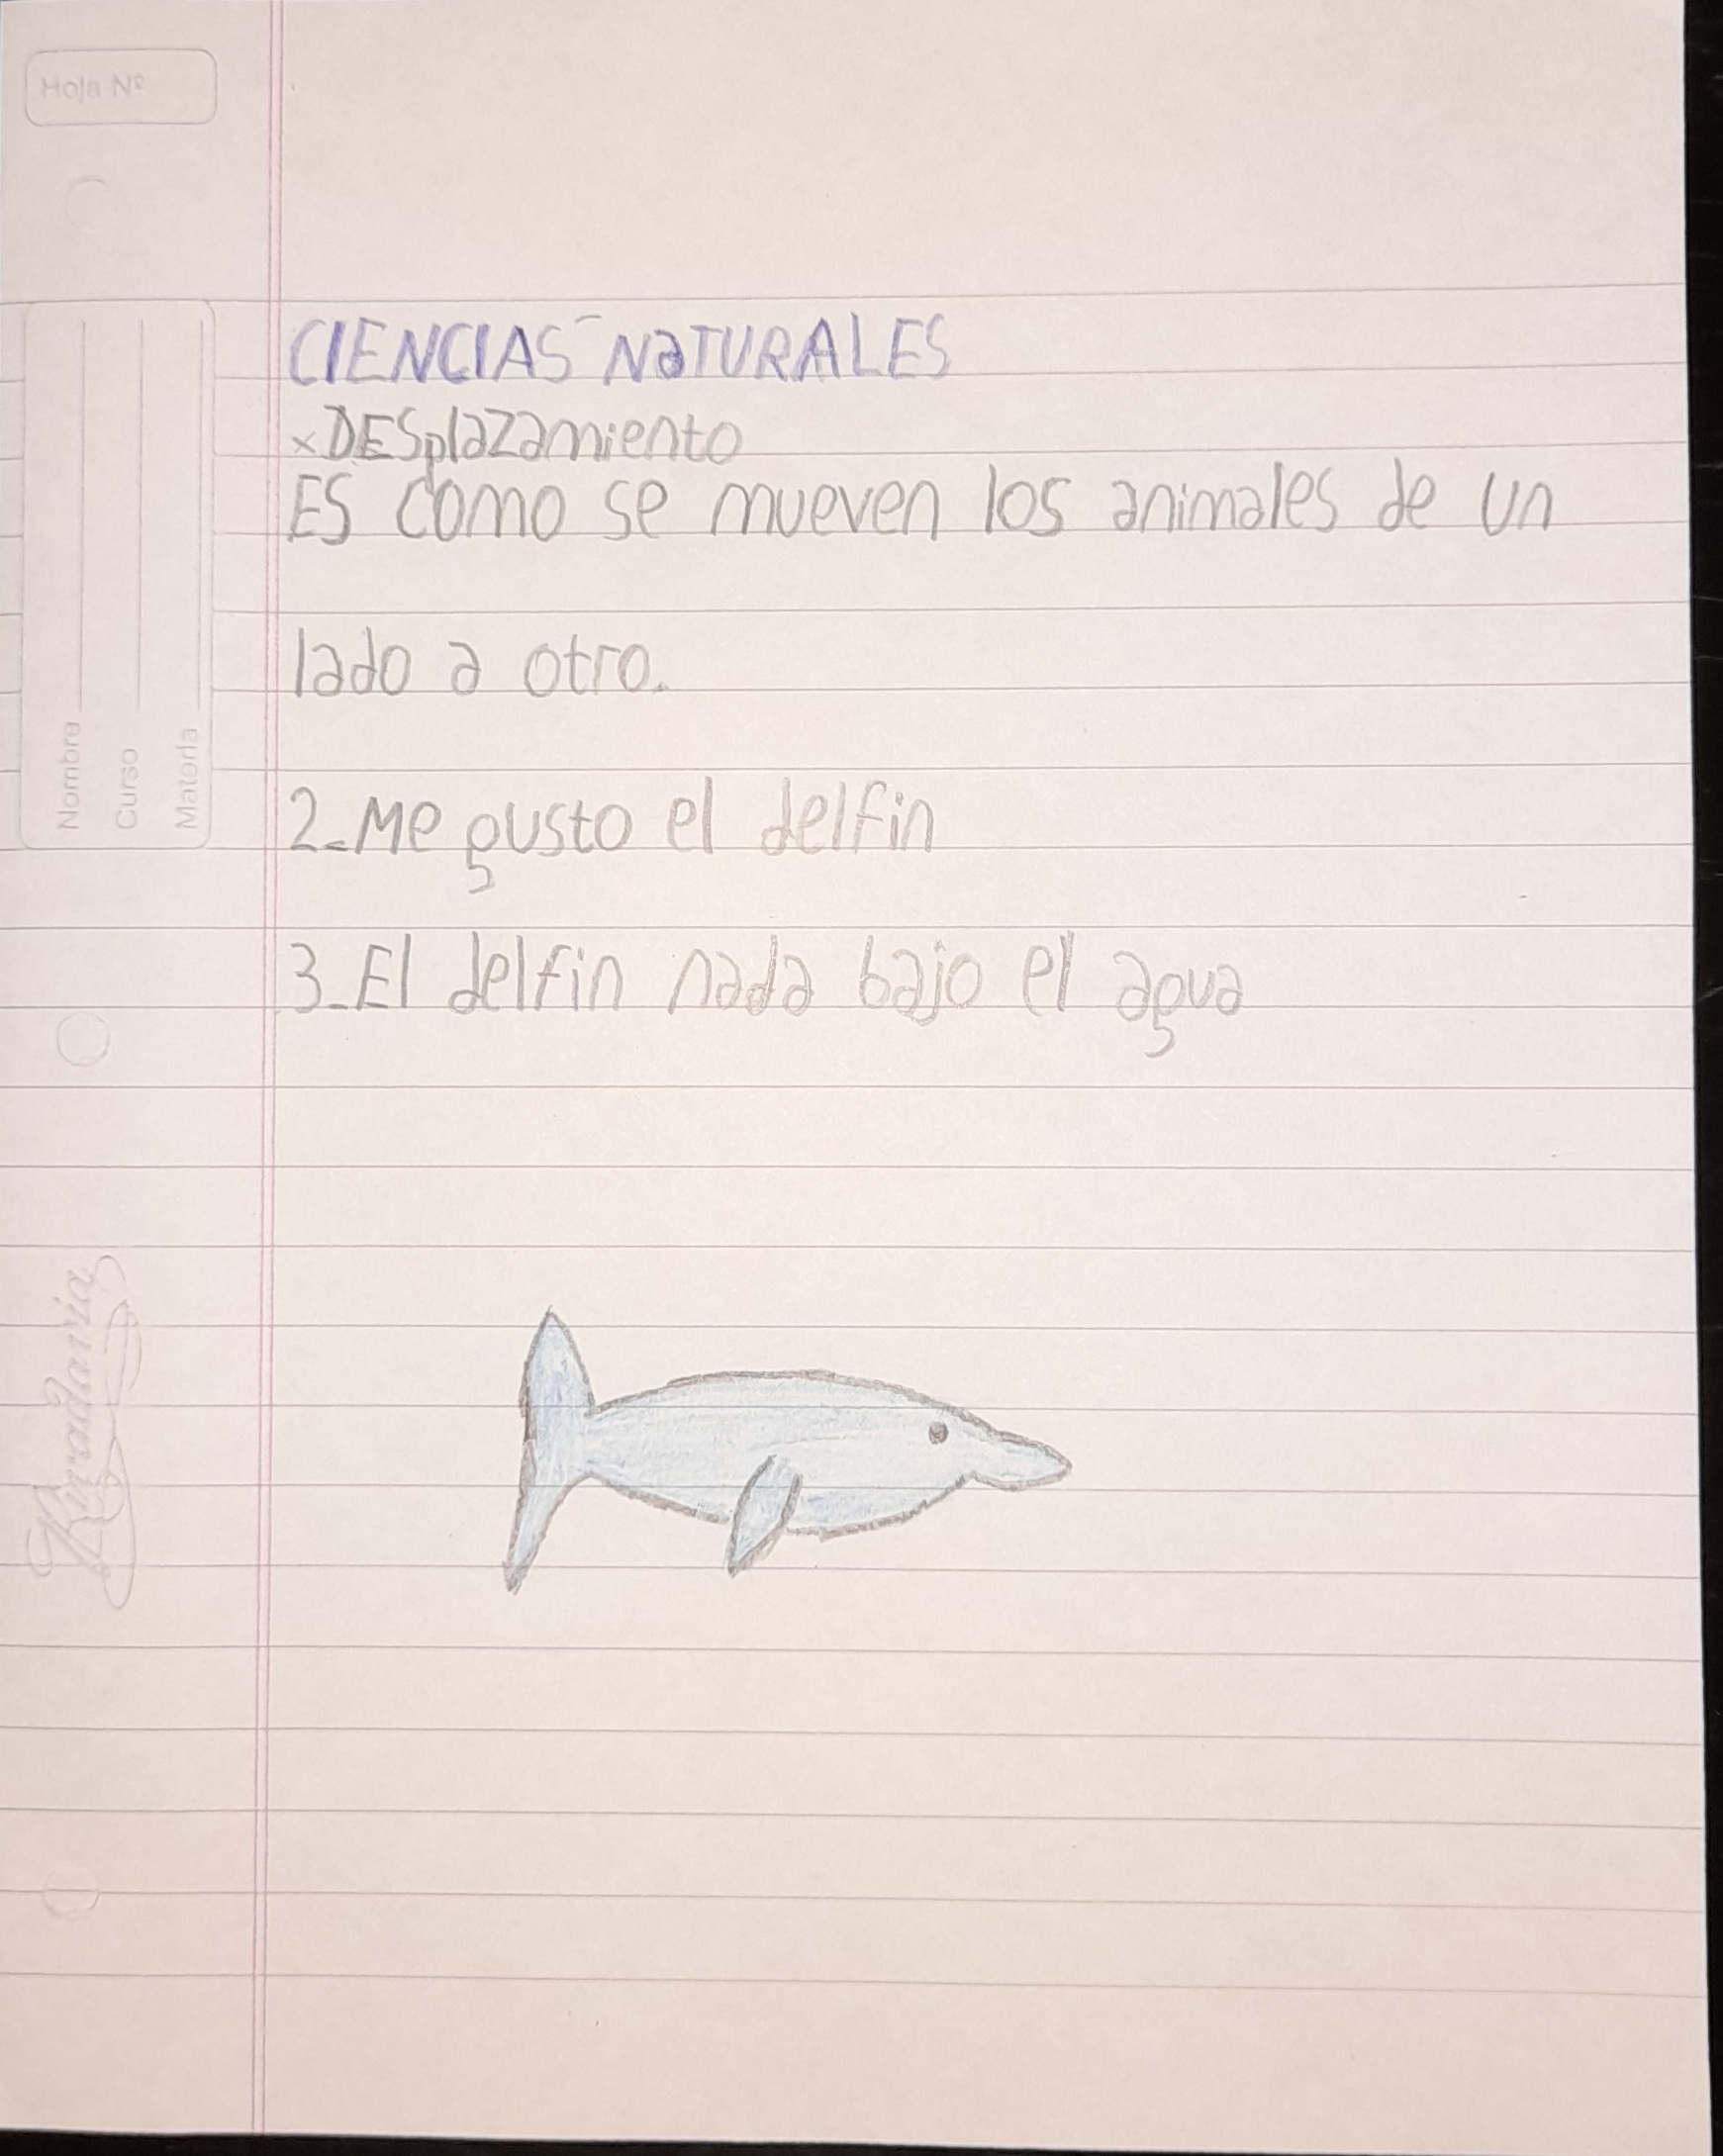 Hoja Nº
CIENCIAS NaTURALES
xDESplazamiento
ES como se mueven los animales de un
lado a otro.
2-Me gusto el delfin
3-El delfin nada bajo el agua
Nombre
Curso
Materia
Rivadavia